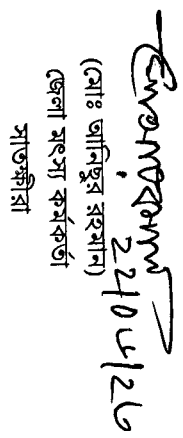 (মোঃ আনিছুর রহমান)
জেলা মৎস্য কর্মকর্তা
সাতক্ষীরা